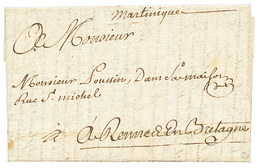 Martinique
A Monsieur
Monsieur Poussin, Dans Sa maison
Rue St. michel
à Rennes En Bretagne